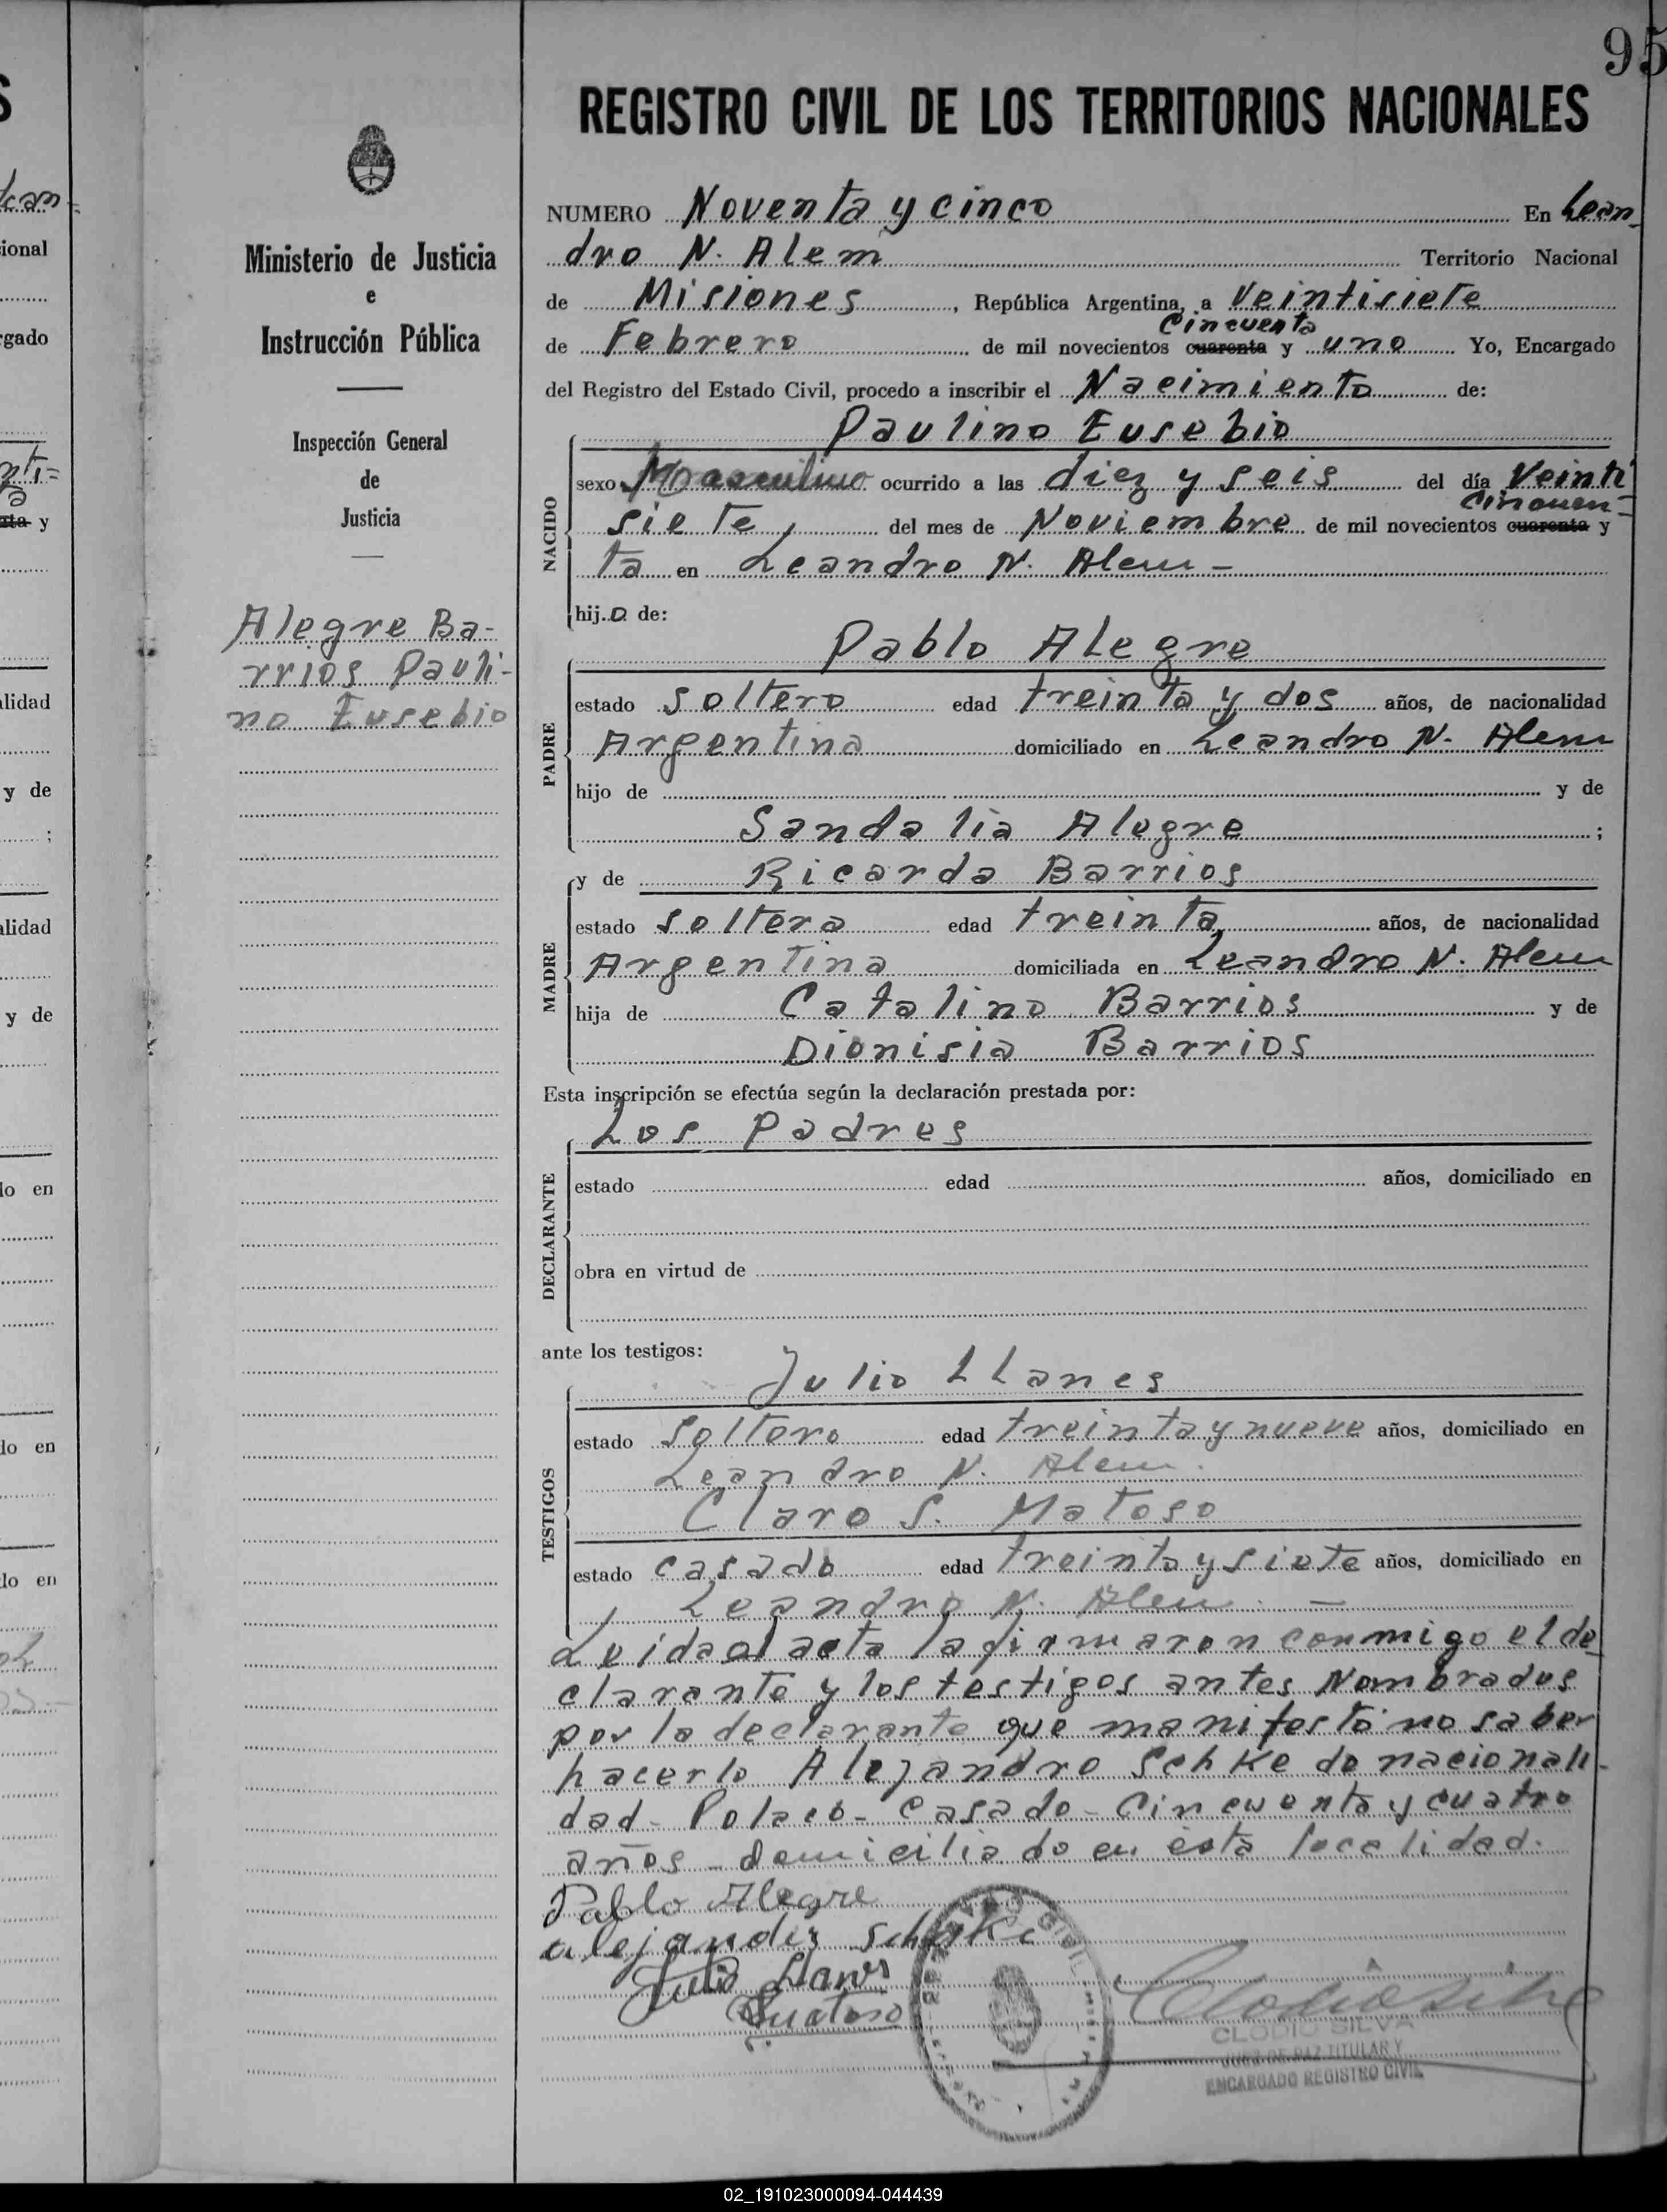 95
REGISTRO CIVIL DE LOS TERRITORIOS NACIONALES
Ministerio de Justicia
e
Instrucción Pública
Inspección General
de
Justicia
Alegre Ba-
rrios Pauli-
no Eusebio
NUMERO Noventa y cinco En Lean
dro N. Alem Territorio Nacional
de Misiones, República Argentina, a Veintisiete
Cincuenta
de Febrero de mil novecientos cuarenta y uno Yo, Encargado
del Registro del Estado Civil, procedo a inscribir el Nacimiento de:
Paulino Eusebio
NACIDO
sexo Masculino ocurrido a las diez y seis del día Veinti
Cincuen-
siete, del mes de Noviembre de mil novecientos cuarenta y
ta en Leandro N. Alem -
hijo de:
Pablo Alegre
PADRE
estado soltero edad treinta y dos años, de nacionalidad
Argentina domiciliado en Leandro N. Alem
hijo de y de
Sandalia Alegre ;
y de Ricarda Barrios
MADRE
estado soltera edad treinta años, de nacionalidad
Argentina domiciliada en Leandro N. Alem
hija de Catalino Barrios y de
Dionisia Barrios
Esta inscripción se efectúa según la declaración prestada por:
Los Padres
DECLARANTE
estado edad años, domiciliado en
obra en virtud de
ante los testigos:
Julio Llanes
TESTIGOS
estado Soltero edad treinta y nueve años, domiciliado en
Leandro N. Alem.
Claro S. Matoso
estado casado edad treinta y siete años, domiciliado en
Leandro N. Alem. -
Leida el acta la firmaron conmigo el de
clarante y los testigos antes Nombrados
por la declarante que manifestó no saber
hacerlo Alejandro Schke de nacionali-
dad - Polaco - Casado - Cincuenta y cuatro
años - domiciliado en ésta localidad.
Pablo Alegre
Julio Llanes
Matoso
CLODIO SILVA
JUEZ DE PAZ TITULAR Y
ENCARGADO REGISTRO CIVIL
02_191023000094-044439